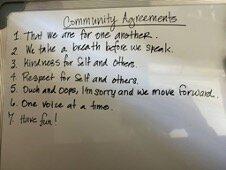 Community Agreements
1. That we are for one another.
2. We take a breath before we speak.
3. Kindness for Self and Others.
4. Respect for Self and others.
5. Ouch and Oops, I'm sorry and we move forward.
6. One voice at a time.
7. Have fun!